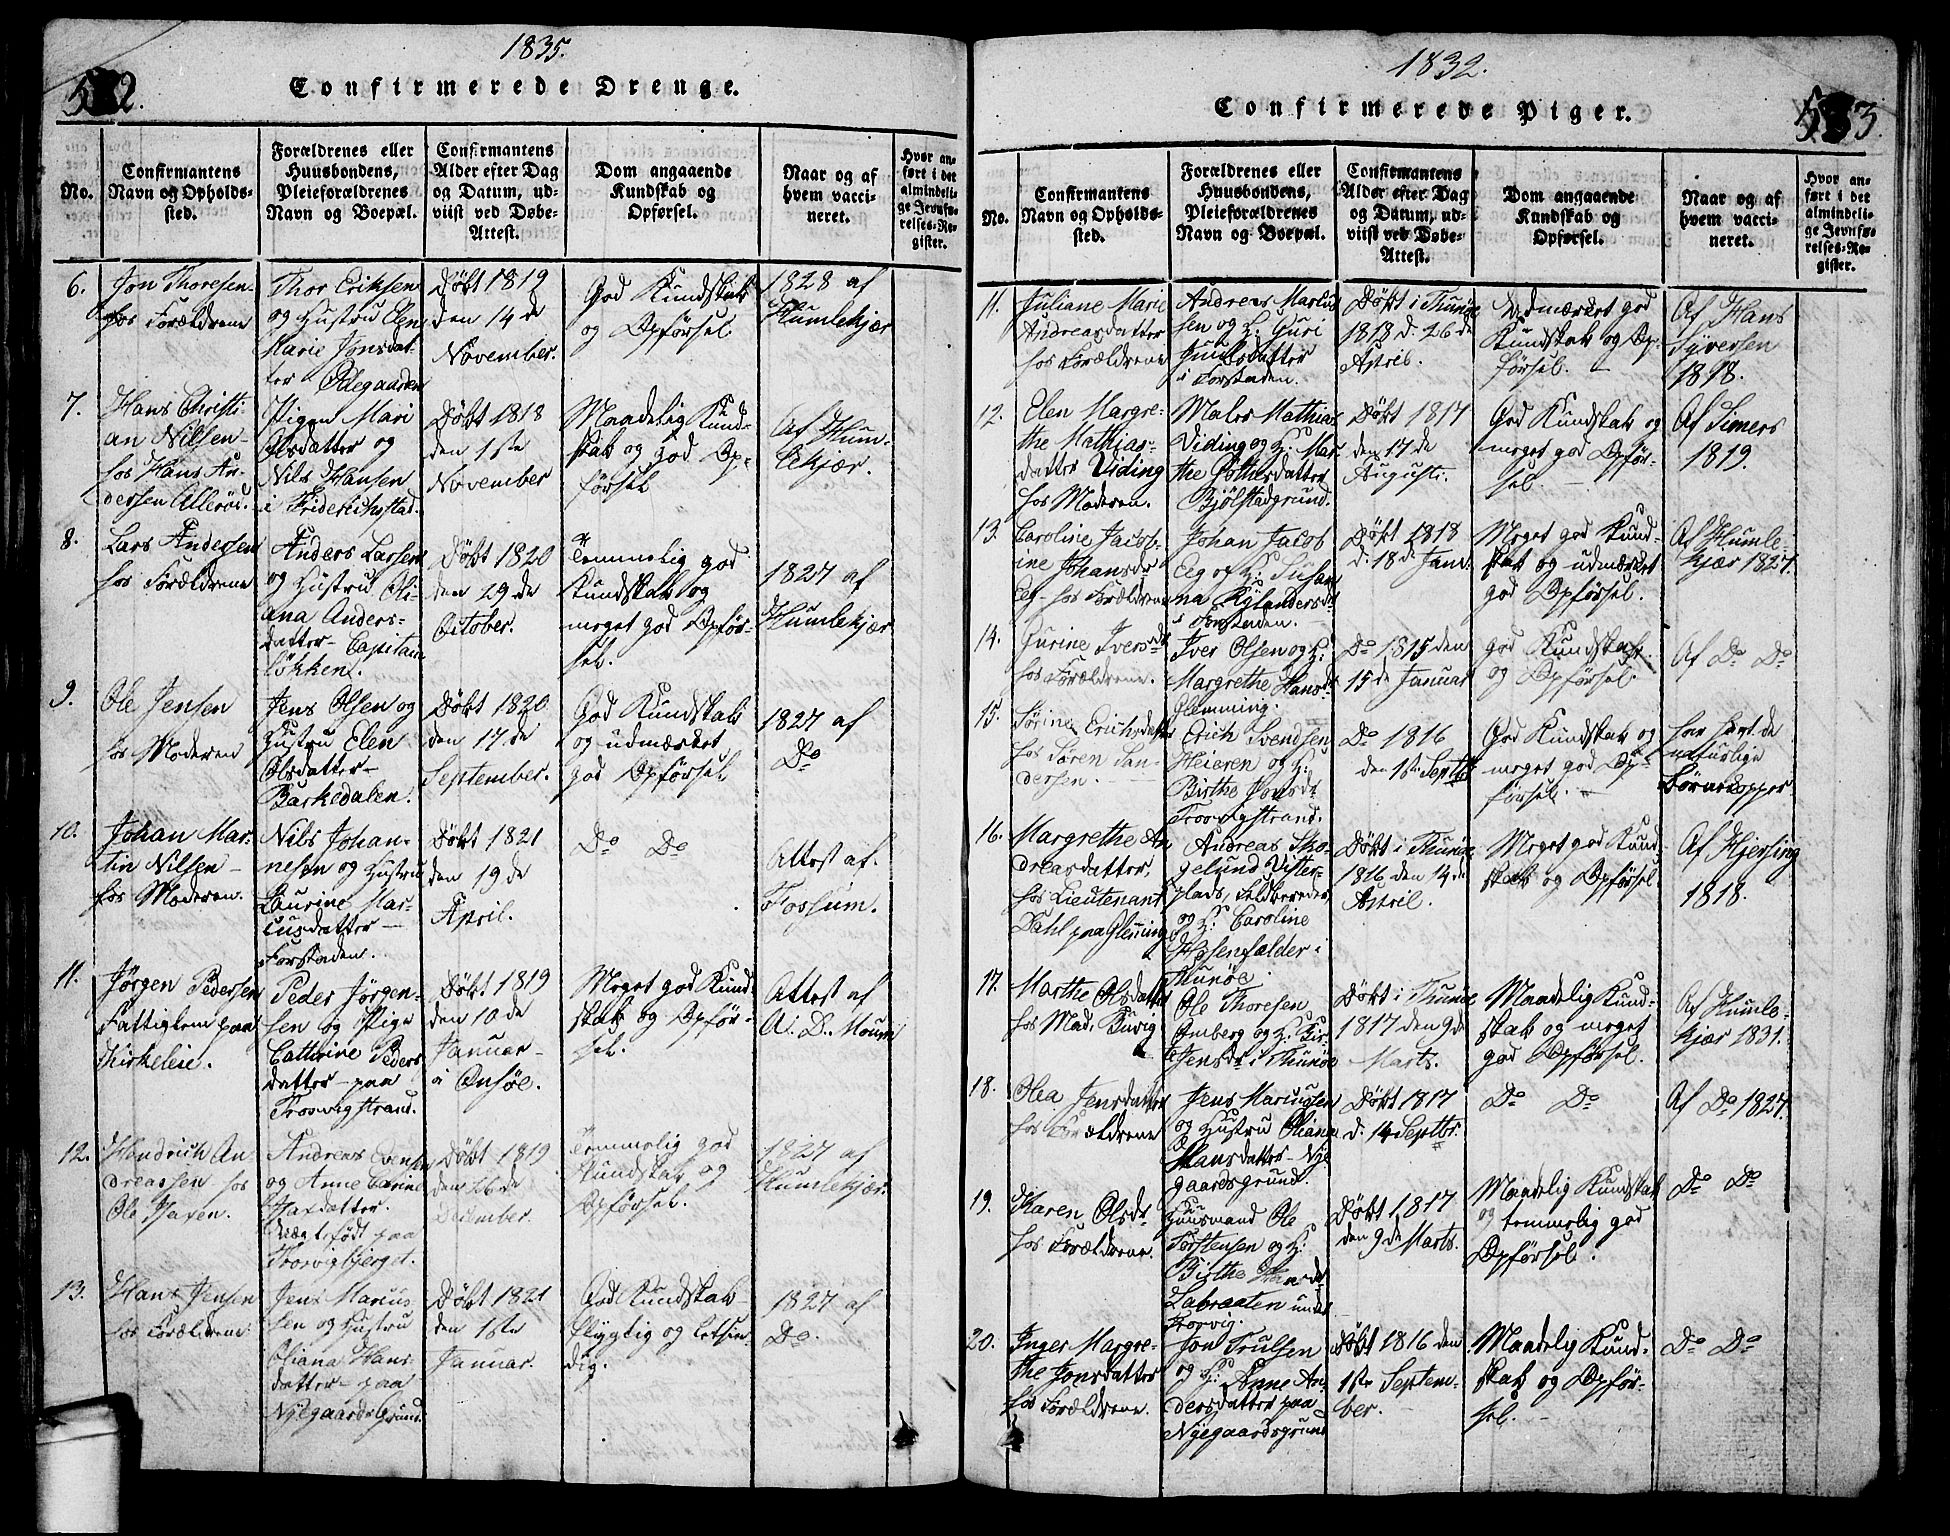 1835.
Confirmerede Drenge.
No.
Confirmantens
Navn og Opholds-
sted.
Forældrenes eller
Huusbondens,
Pleieforældrenes
Navn og Boepæl.
Confirmantens
Alder efter Dag
og Datum, ud-
viist ved Døbe-
Attest.
Dom angaaende
Kundskab og
Opførsel.
Naar og af
hvem vacci-
neret.
Hvor an-
ført i det
almindeli-
ge Jevnfø-
relses-Re-
gister.
6.
Jon Thoresen
hos Forældrene
Thor Eriksen
og Hustru Elen
Marie Jonsdat-
ter Ødegaarden
Døbt 1819
den 14 de
November.
God Kundskab
og Opførsel
1828 af
Humlekjær
7.
Hans Christi-
an Nilsen -
hos Hans An-
dersen Allerød.
Pigen Mari
Olsdatter og
Nils Hansen
i Friderichstad.
Døbt 1818
den 1ste
November
Maadelig Kund-
skab og god Op-
førsel
Af Hum-
lekjær.
8.
Lars Andersen
hos Forældrene
Anders Larsen
og Hustru Oli-
ana Anders-
datter - Capitain
løkken.
Døbt 1820
den 29 de
October.
Temmelig god
Kundskab og
meget god Opfør-
sel.
1827 af
Humlekjær
9.
Ole Jensen
hos Moderen
Jens Olsen og
Hustru Elen
Olsdatter -
Barkedalen.
Døbt 1820
den 17. de
September.
God Kundskab
og udmærket
god Opførsel
1827 af
Do
10.
Johan Mar-
tin Nilsen -
hos Moderen.
Nils Johan-
nesen og Hustru
Laurine Mar-
cusdatter -
Forstaden.
Døbt 1821
den 19 de
April.
Do Do
Attest af
Fossum.
11.
Jørgen Pedersen
Fattiglem paa
Kirkeleie.
Peder Jørgen-
sen og Pige
Cathrine Peders
datter - paa
Trosvigstrand.
Døbt 1819
den 10 de
Januar -
i Onsøe.
Meget god Kund
skab og Opfør-
sel.
Attest af
12.
Hendrich An-
dreassen hos
Ole Isaxen.
Andreas Evensen
og Anne Carine
Isaxdatter.
Uægte, født paa
Trosvigbjerget.
Døbt 1819
den 26 de
December.
Temmelig god
Kundskab og
Opførsel.
1827 af
Humlekjær.
13.
Hans Jensen
hos Forældrene
Jens Marius
sen og Hustru
Oliana Hans-
datter - paa
Nyegaards Grund
Døbt 1821
den 1ste
Januar.
God Kundskab
flygtig og letsin-
dig.
1827 af
Do.
1832.
Confirmerede Piger.
No.
Confirmantens
Navn og Opholds-
sted.
Forældrenes eller
Huusbondens,
Pleieforældrenes
Navn og Boepæl.
Confirmantens
Alder efter Dag
og Datum, ud-
viist ved Døbe-
Attest.
Dom angaaende
Kundskab og
Opførsel.
Naar og af
hvem vacci-
neret.
Hvor an-
ført i det
almindeli-
ge Jevnfø-
relses-Re-
gister.
11.
Juliane Marie
Andreasdatter
hos Forældrene
Andreas Marius
sen og H: Guri
Juulsdatter
i Forstaden.
Døbt i Thunøe
1818 d. 26 de
Udmærket god
Kundskab og Op-
førsel. -
Af Hans
Syversen
1818.
12.
Elen Margre-
the Mathias-
datter Viding
hos Moderen.
Maler Mathias
Viding og H: Mar-
the
Bjølstadgrund.
Døbt 1817
den 17 de
Augusti.
God Kundskab og
meget god Opfør-
sel. -
Af Simers
1819.
13.
Caroline Jacob-
ine Johansdr
Eeg - hos Forældrene
Johan Jacob
Eeg og H: Susan
na Rylandersdr
i Forstaden.
Døbt 1818
d. 18 de Janr.
Meget god Kund-
skab og udmærket
god Opførsel.
Af Humle-
kjær 1827.
14.
Gurine Iversdr
hos Forældrene.
Iver Olsen og H:
Margrethe Hansdr
Glemming.
Do 1815 den
15 de Januar
god Kundskab
og Opførsel
Af Do Do
15.
Sørine Erichsdatter
hos Søren San-
dersen.
Erich Svendsen
Heieren og H:
Birthe Jonsdr
Trosvigstrand.
Do 1816
den 1ste Septbr
God Kundskab og
meget god Op-
førsel. -
har havt de
naturlige
Børnekopper
16.
Margrethe An
dreasdatter,
hos Lieutenant
Dahl paa Glemming
Andreas Sko-
gelund
og H: Caroline
Hosenfalder i
Thunøe.
Døbt i Thunøe
1816 den 14 de
April.
Meget god Kund
skab og Opførsel
Af Hjersing
1818.
17.
Marthe Olsdatter
hos Mad. Buvig
Ole Thoresen
Omberg og H: Bir-
te Jensdr i Thunøe
Døbt i Thunøe
1817 den 9 de
Marts.
Maadelig Kund-
skab og meget
god Opførsel.
Af Humle-
kjær 1831.
18.
Olea Jensdatter
hos Forældrene
Jens Mariussen
og Hustru Oliana
Hansdatter - Nye
gaardsgrund.
Døbt 1817
d. 14 Septbr.
Do Do
Af Do 1827.
19.
Karen Olsdr
hos Forældrene.
Huusmand Ole
Torstensen og H:
Birthe Hansdr
Labraaten under
Trosvig.
Døbt 1817
den 9 de Marts.
Maadelig Kundskab
og temmelig god
Opførsel.
Do Do
20.
Inger Margre-
the Jonsdatter
hos Forældrene.
Jon Trulsen
og H: Anne An-
dersdatter paa
Nyegaardsgrund
Døbt 1816 den
1ste Septem-
ber.
Maadelig Kund
skab og Opfør-
sel. -
Do Do